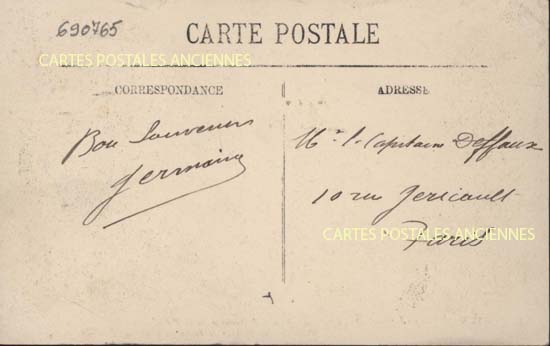 690765
CARTE POSTALE
CARTES POSTALES ANCIENNES
CORRESPONDANCE
Bon Souvenir
Germaine
ADRESSE
Mr. le Capitaine Deffaux
10 rue Gericault
Paris
CARTES POSTALES ANCIENNES